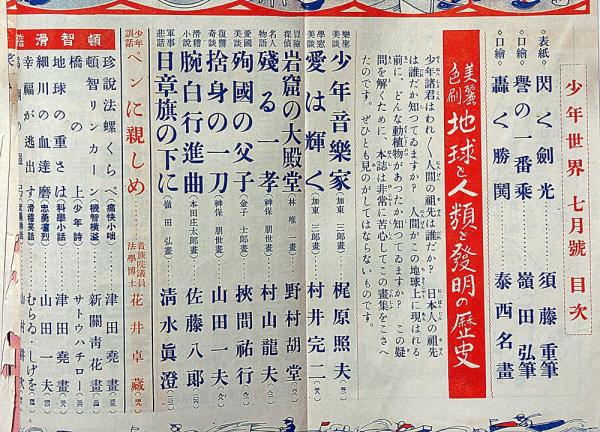 少年世界 七月號 目次
表紙 閃く劍光 須藤重筆
口繪 譽の一番乘 嶺田弘筆
口繪 轟く勝鬨 泰西名畫
美麗色刷 地球と人類と發明の歷史
少年諸君はわれ〳〵人間の祖先は誰だか? 日本人の祖先
は誰だか知つてゐますか? 人間がこの地球上に現はれる
前に、どんな動植物があつたか知つてゐますか? この疑
問を解くために、本誌は非常に苦心してこの畫集をこさへ
たのです。ぜひとも見のがしてはならないものです。
樂聖美談 少年音樂家 (加東三郎畫) 梶原照夫
學窓美談 愛は輝く (加東三郎畫) 村井完二
冒險探偵 岩窟の大殿堂 (林唯畫) 野村胡堂
名人物語 殘る一孝 (神保朋世畫) 村山龍夫
愛國美談 殉國の父子 (金子士郎畫) 挾間祐行
復讐奇談 捨身の一刀 (神保朋世畫) 山田一夫
滑稽小說 腕白行進曲 (本田庄太郎畫) 佐藤八郎
軍事悲話 日章旗の下に (嶺田弘畫) 清水眞澄
少年訓話 ペンに親しめ 貴族院議員 法學博士 花井卓藏
頓智滑稽
珍說法螺くらべ (痛快小咄) 津田堯畫
頓智リンカーン (機智橫溢) 新關青花畫
橋の上 (少年詩) サトウハチロー
地球の重さは (科學小話) 津田堯畫
細川の血達磨 (忠勇凛烈) 山田一夫
幸福が逃出す (滑稽笑話) むらゐ・しげを